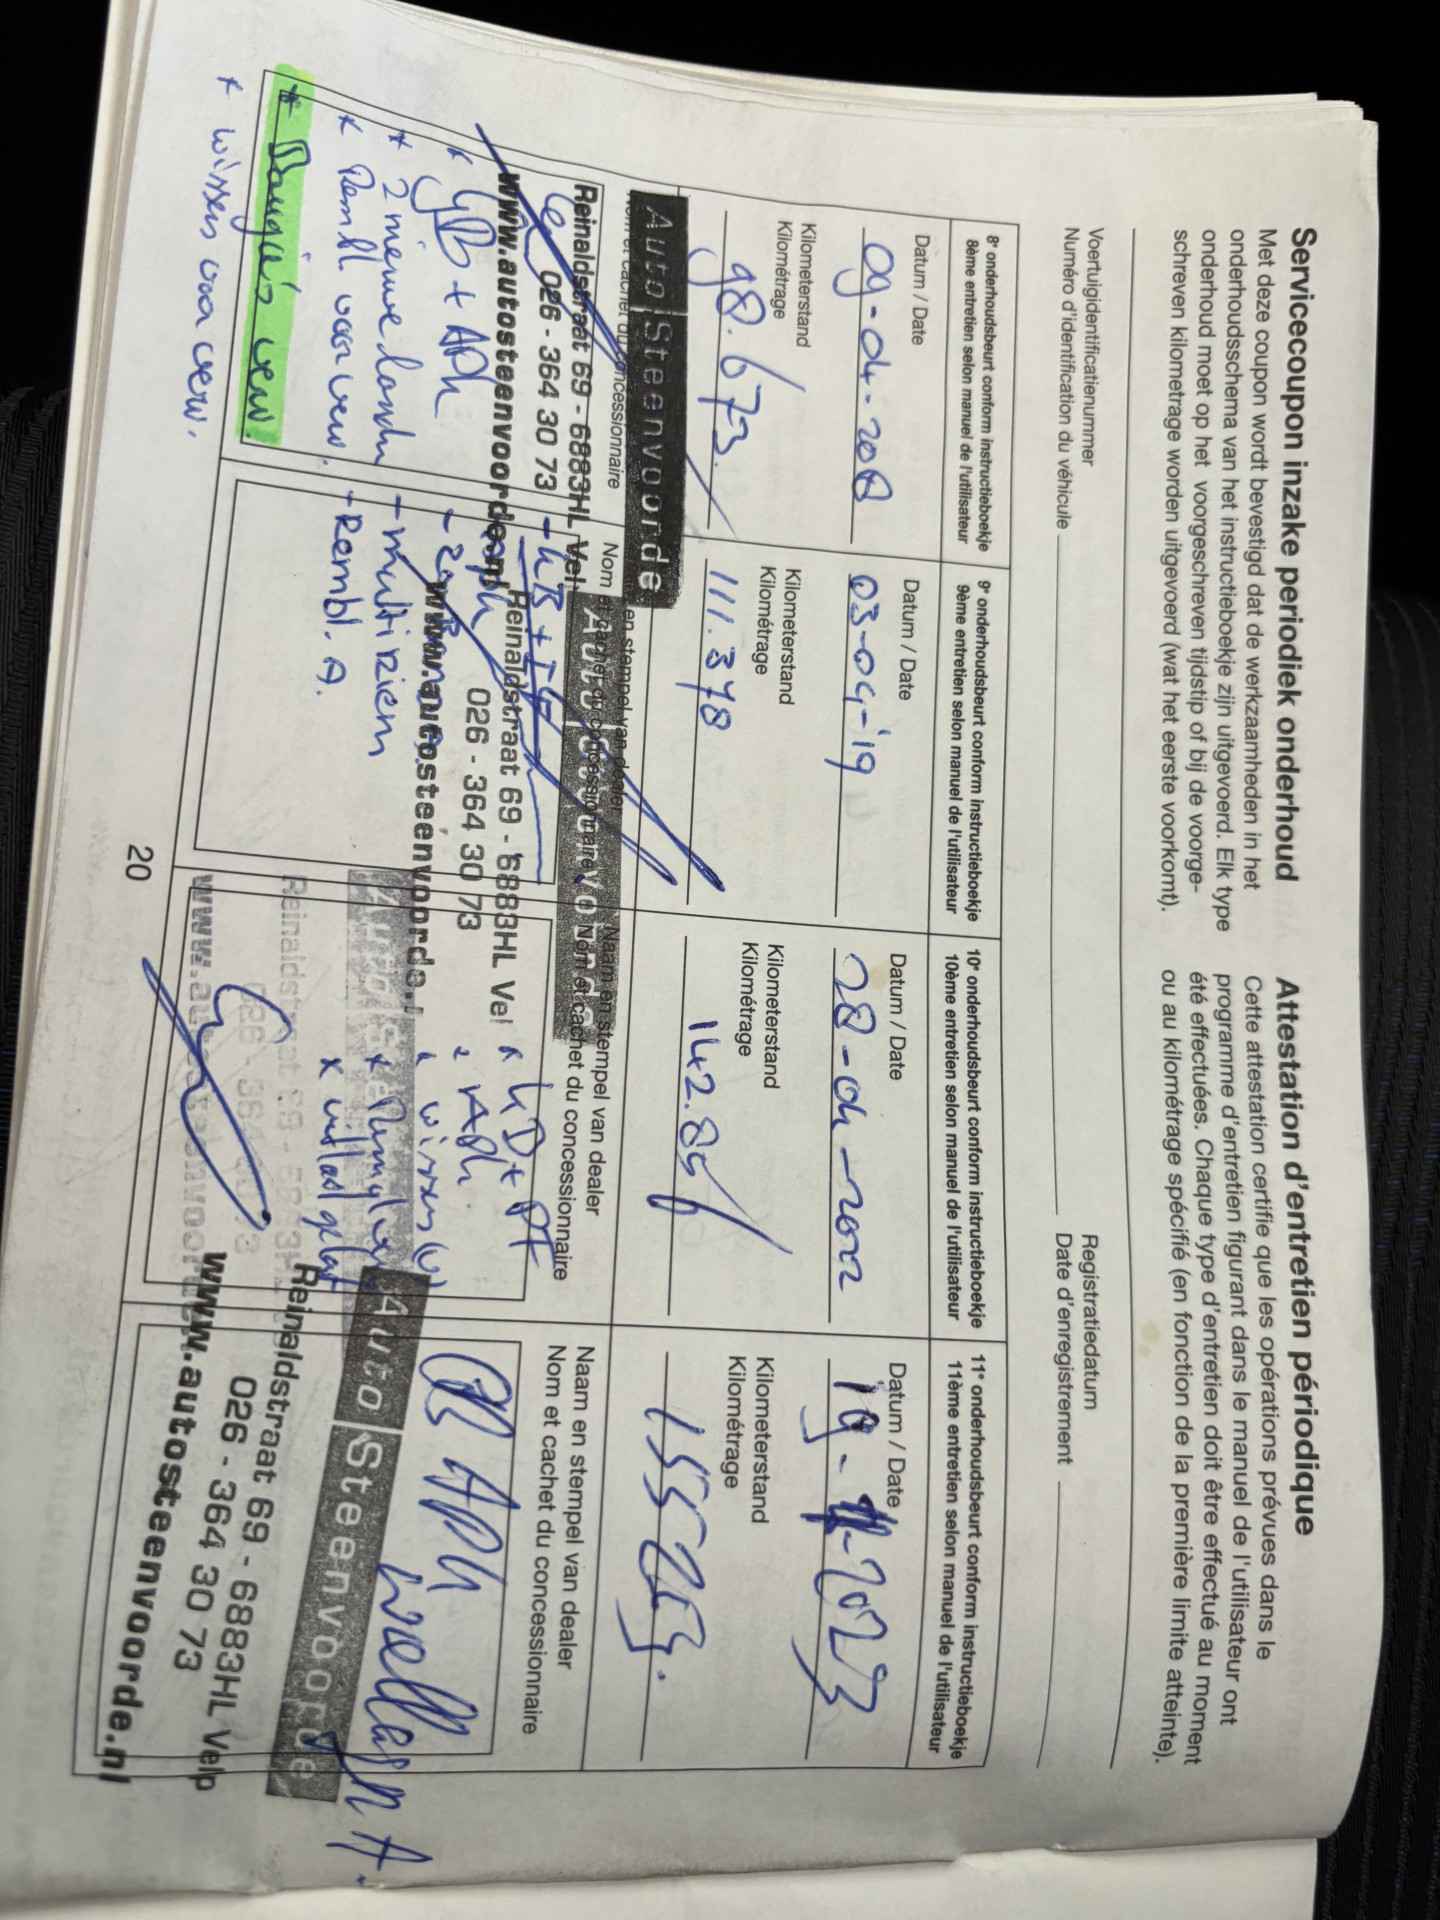 Servicecoupon inzake periodiek onderhoud
Met deze coupon wordt bevestigd dat de werkzaamheden in het
onderhoudsschema van het instructieboekje zijn uitgevoerd. Elk type
onderhoud moet op het voorgeschreven tijdstip of bij de voorge-
schreven kilometrage worden uitgevoerd (wat het eerste voorkomt).
Attestation d'entretien périodique
Cette attestation certifie que les opérations prévues dans le
programme d'entretien figurant dans le manuel de l'utilisateur ont
été effectuées. Chaque type d'entretien doit être effectué au moment
ou au kilométrage spécifié (en fonction de la première limite atteinte).
Voertuigidentificatienummer
Numéro d'identification du véhicule
Registratiedatum
Date d'enregistrement
8e onderhoudsbeurt conform instructieboekje
8ème entretien selon manuel de l'utilisateur
Datum / Date
09-04-2018
Kilometerstand
Kilométrage
98.673
Nom et cachet du concessionnaire
Auto Steenvoorde
Reinaldstraat 69 - 6883HL Vel
026 - 364 30 73
www.autosteenvoorde.nl
* GB + APk
* 2 nieuwe banden
* Rembl voor verv.
* verv.
* wissers voor verv.
9e onderhoudsbeurt conform instructieboekje
9ème entretien selon manuel de l'utilisateur
Datum / Date
03-04-'19
Kilometerstand
Kilométrage
111.378
en stempel van dealer
Nom et cachet du concessionnaire
Reinaldstraat 69 - 6883HL Vel
026 - 364 30 73
www.autosteenvoorde.
- multiriem
- Rembl. A.
10e onderhoudsbeurt conform instructieboekje
10ème entretien selon manuel de l'utilisateur
Datum / Date
28-04-2022
Kilometerstand
Kilométrage
Naam en stempel van dealer
Nom et cachet du concessionnaire
11e onderhoudsbeurt conform instructieboekje
11ème entretien selon manuel de l'utilisateur
Datum / Date
Kilometerstand
Kilométrage
Naam en stempel van dealer
Nom et cachet du concessionnaire
Auto Steenvoorde
Reinaldstraat 69 - 6883HL Velp
026 - 364 30 73
www.autosteenvoorde.nl
20